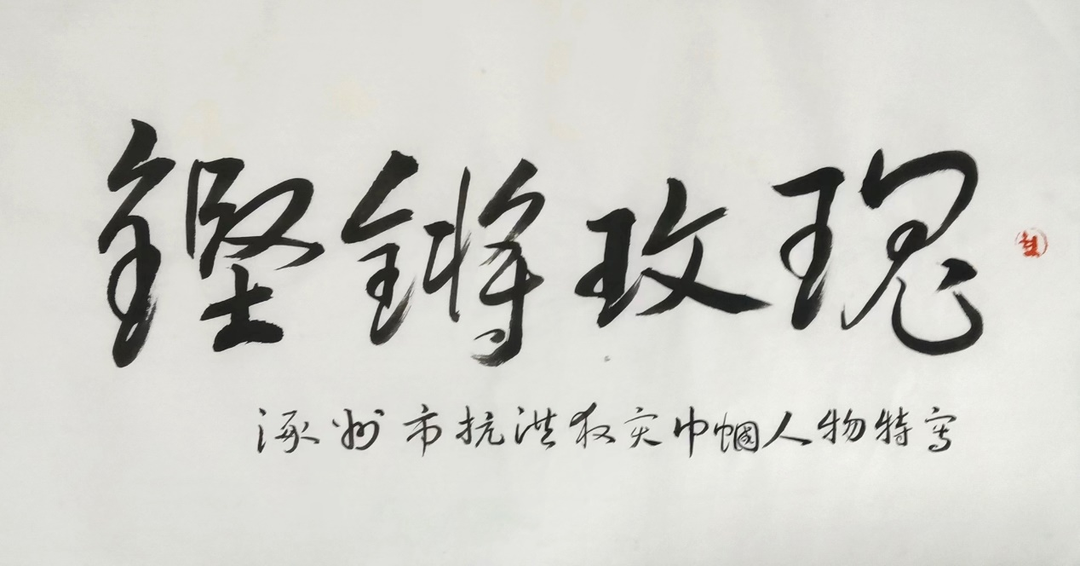 鏗鏘玫瑰
涿州市抗洪救灾巾帼人物特写